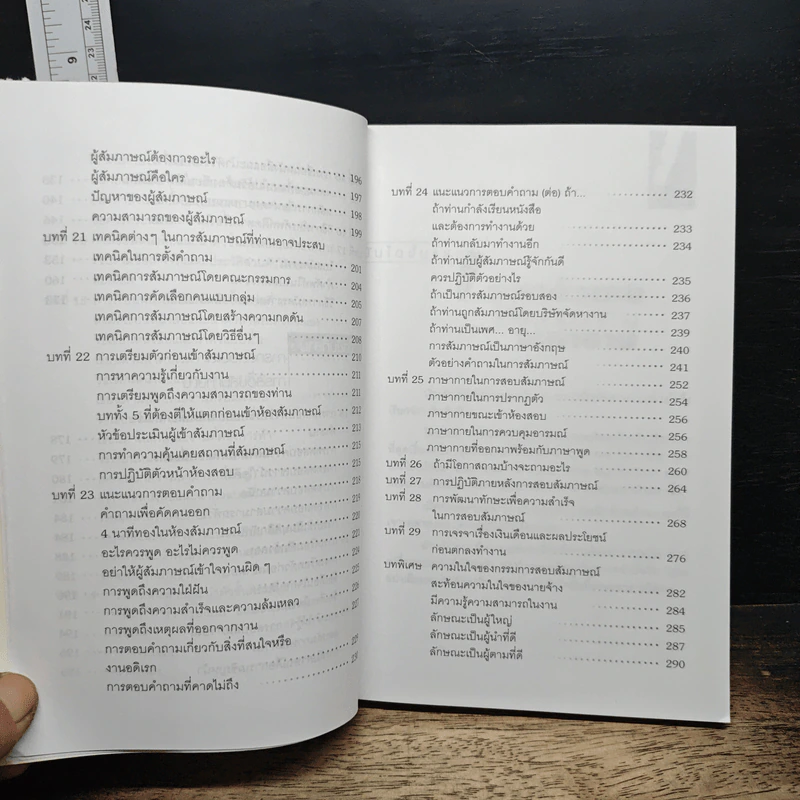 ผู้สัมภาษณ์ต้องการอะไร 196
ผู้สัมภาษณ์คือใคร 197
ปัญหาของผู้สัมภาษณ์ 198
ความสามารถของผู้สัมภาษณ์ 199
บทที่ 21 เทคนิคต่างๆ ในการสัมภาษณ์ที่ท่านอาจประสบ
เทคนิคในการตั้งคำถาม 201
เทคนิคการสัมภาษณ์โดยคณะกรรมการ 204
เทคนิคการคัดเลือกคนแบบกลุ่ม 205
เทคนิคการสัมภาษณ์โดยสร้างความกดดัน 207
เทคนิคการสัมภาษณ์โดยวิธีอื่นๆ 208
บทที่ 22 การเตรียมตัวก่อนเข้าสัมภาษณ์ 210
การหาความรู้เกี่ยวกับงาน 211
การเตรียมพูดถึงความสามารถของท่าน 211
บททั้ง 5 ที่ต้องตีให้แตกก่อนเข้าห้องสัมภาษณ์ 212
หัวข้อประเมินผู้เข้าสัมภาษณ์ 213
การทำความคุ้นเคยสถานที่สัมภาษณ์ 214
การปฏิบัติตัวหน้าห้องสอบ 215
บทที่ 23 แนะแนวการตอบคำถาม 218
คำถามเพื่อคัดคนออก 219
4 นาทีทองในห้องสัมภาษณ์ 220
อะไรควรพูด อะไรไม่ควรพูด 221
อย่าให้ผู้สัมภาษณ์เข้าใจท่านผิด ๆ
การพูดถึงความใฝ่ฝัน
การพูดถึงความสำเร็จและความล้มเหลว
การพูดถึงเหตุผลที่ออกจากงาน
การตอบคำถามเกี่ยวกับสิ่งที่สนใจหรือ
งานอดิเรก
การตอบคำถามที่คาดไม่ถึง
บทที่ 24 แนะแนวการตอบคำถาม (ต่อ) ถ้า... 232
ถ้าท่านกำลังเรียนหนังสือ
และต้องการทำงานด้วย 233
ถ้าท่านกลับมาทำงานอีก 234
ถ้าท่านกับผู้สัมภาษณ์รู้จักกันดี
ควรปฏิบัติตัวอย่างไร 235
ถ้าเป็นการสัมภาษณ์รอบสอง 236
ถ้าท่านถูกสัมภาษณ์โดยบริษัทจัดหางาน 237
ถ้าท่านเป็นเพศ... อายุ... 239
การสัมภาษณ์เป็นภาษาอังกฤษ 240
ตัวอย่างคำถามในการสัมภาษณ์ 241
บทที่ 25 ภาษากายในการสอบสัมภาษณ์ 252
ภาษากายในการปรากฏตัว 254
ภาษากายขณะเข้าห้องสอบ 256
ภาษากายในการควบคุมอารมณ์ 256
ภาษากายที่ออกมาพร้อมกับภาษาพูด 258
บทที่ 26 ถ้ามีโอกาสถามบ้างจะถามอะไร 260
บทที่ 27 การปฏิบัติภายหลังการสอบสัมภาษณ์ 264
บทที่ 28 การพัฒนาทักษะเพื่อความสำเร็จ
ในการสอบสัมภาษณ์ 268
บทที่ 29 การเจรจาเรื่องเงินเดือนและผลประโยชน์
ก่อนตกลงทำงาน 276
บทพิเศษ ความในใจของกรรมการสอบสัมภาษณ์
สะท้อนความในใจของนายจ้าง 282
มีความรู้ความสามารถในงาน 284
ลักษณะเป็นผู้ใหญ่ 285
ลักษณะเป็นผู้นำที่ดี 287
ลักษณะเป็นผู้ตามที่ดี 290